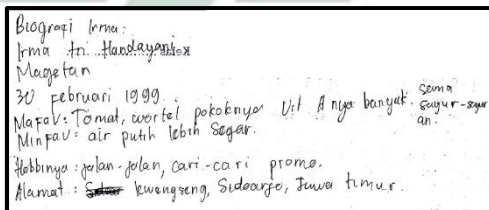 Biografi Irma :
Irma tri Handayani
Magetan
30 Februari 1999.
Mafav : Tomat, wortel pokoknya Vit A nya banyak. sama sayur-sayuran.
Minfav : air putih lebih segar.
Hobbinya : jalan-jalan, cari-cari promo.
Alamat : kwangseng, Sidoarjo, Jawa timur.